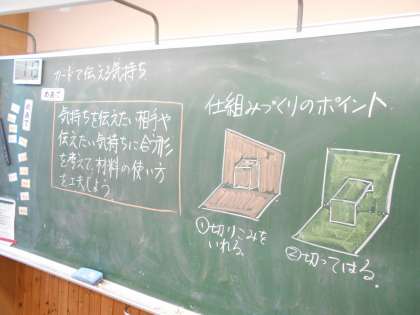 カードで伝える気持ち
めあて
気持ちを伝えたい相手や
伝えたい気持ちに合う形
を考えて、材料の使い方
を工夫しよう。
仕組みづくりのポイント
①切りこみを
いれる。
②切ってはる。